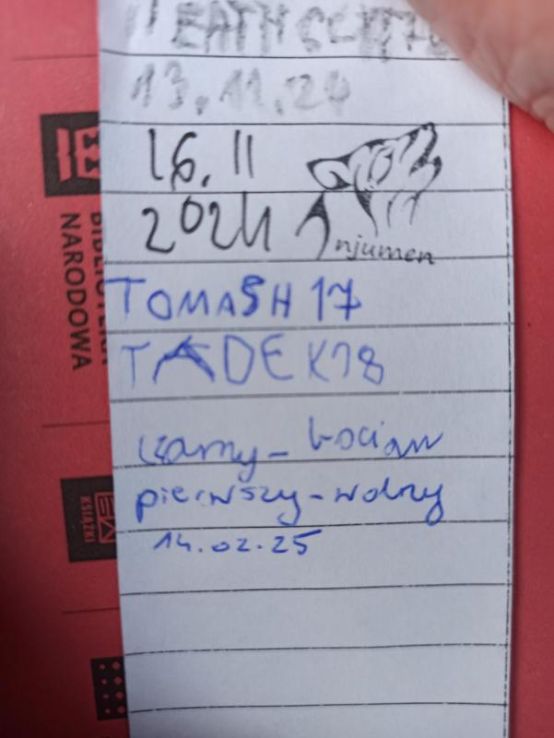 13.11.24
16.11
2024
njumen
TOMASH 17
TADEK18
czarny-bocian
pierwszy-wolny
14.02.25
BIBLIOTEKA
NARODOWA
KSIĄŻKI